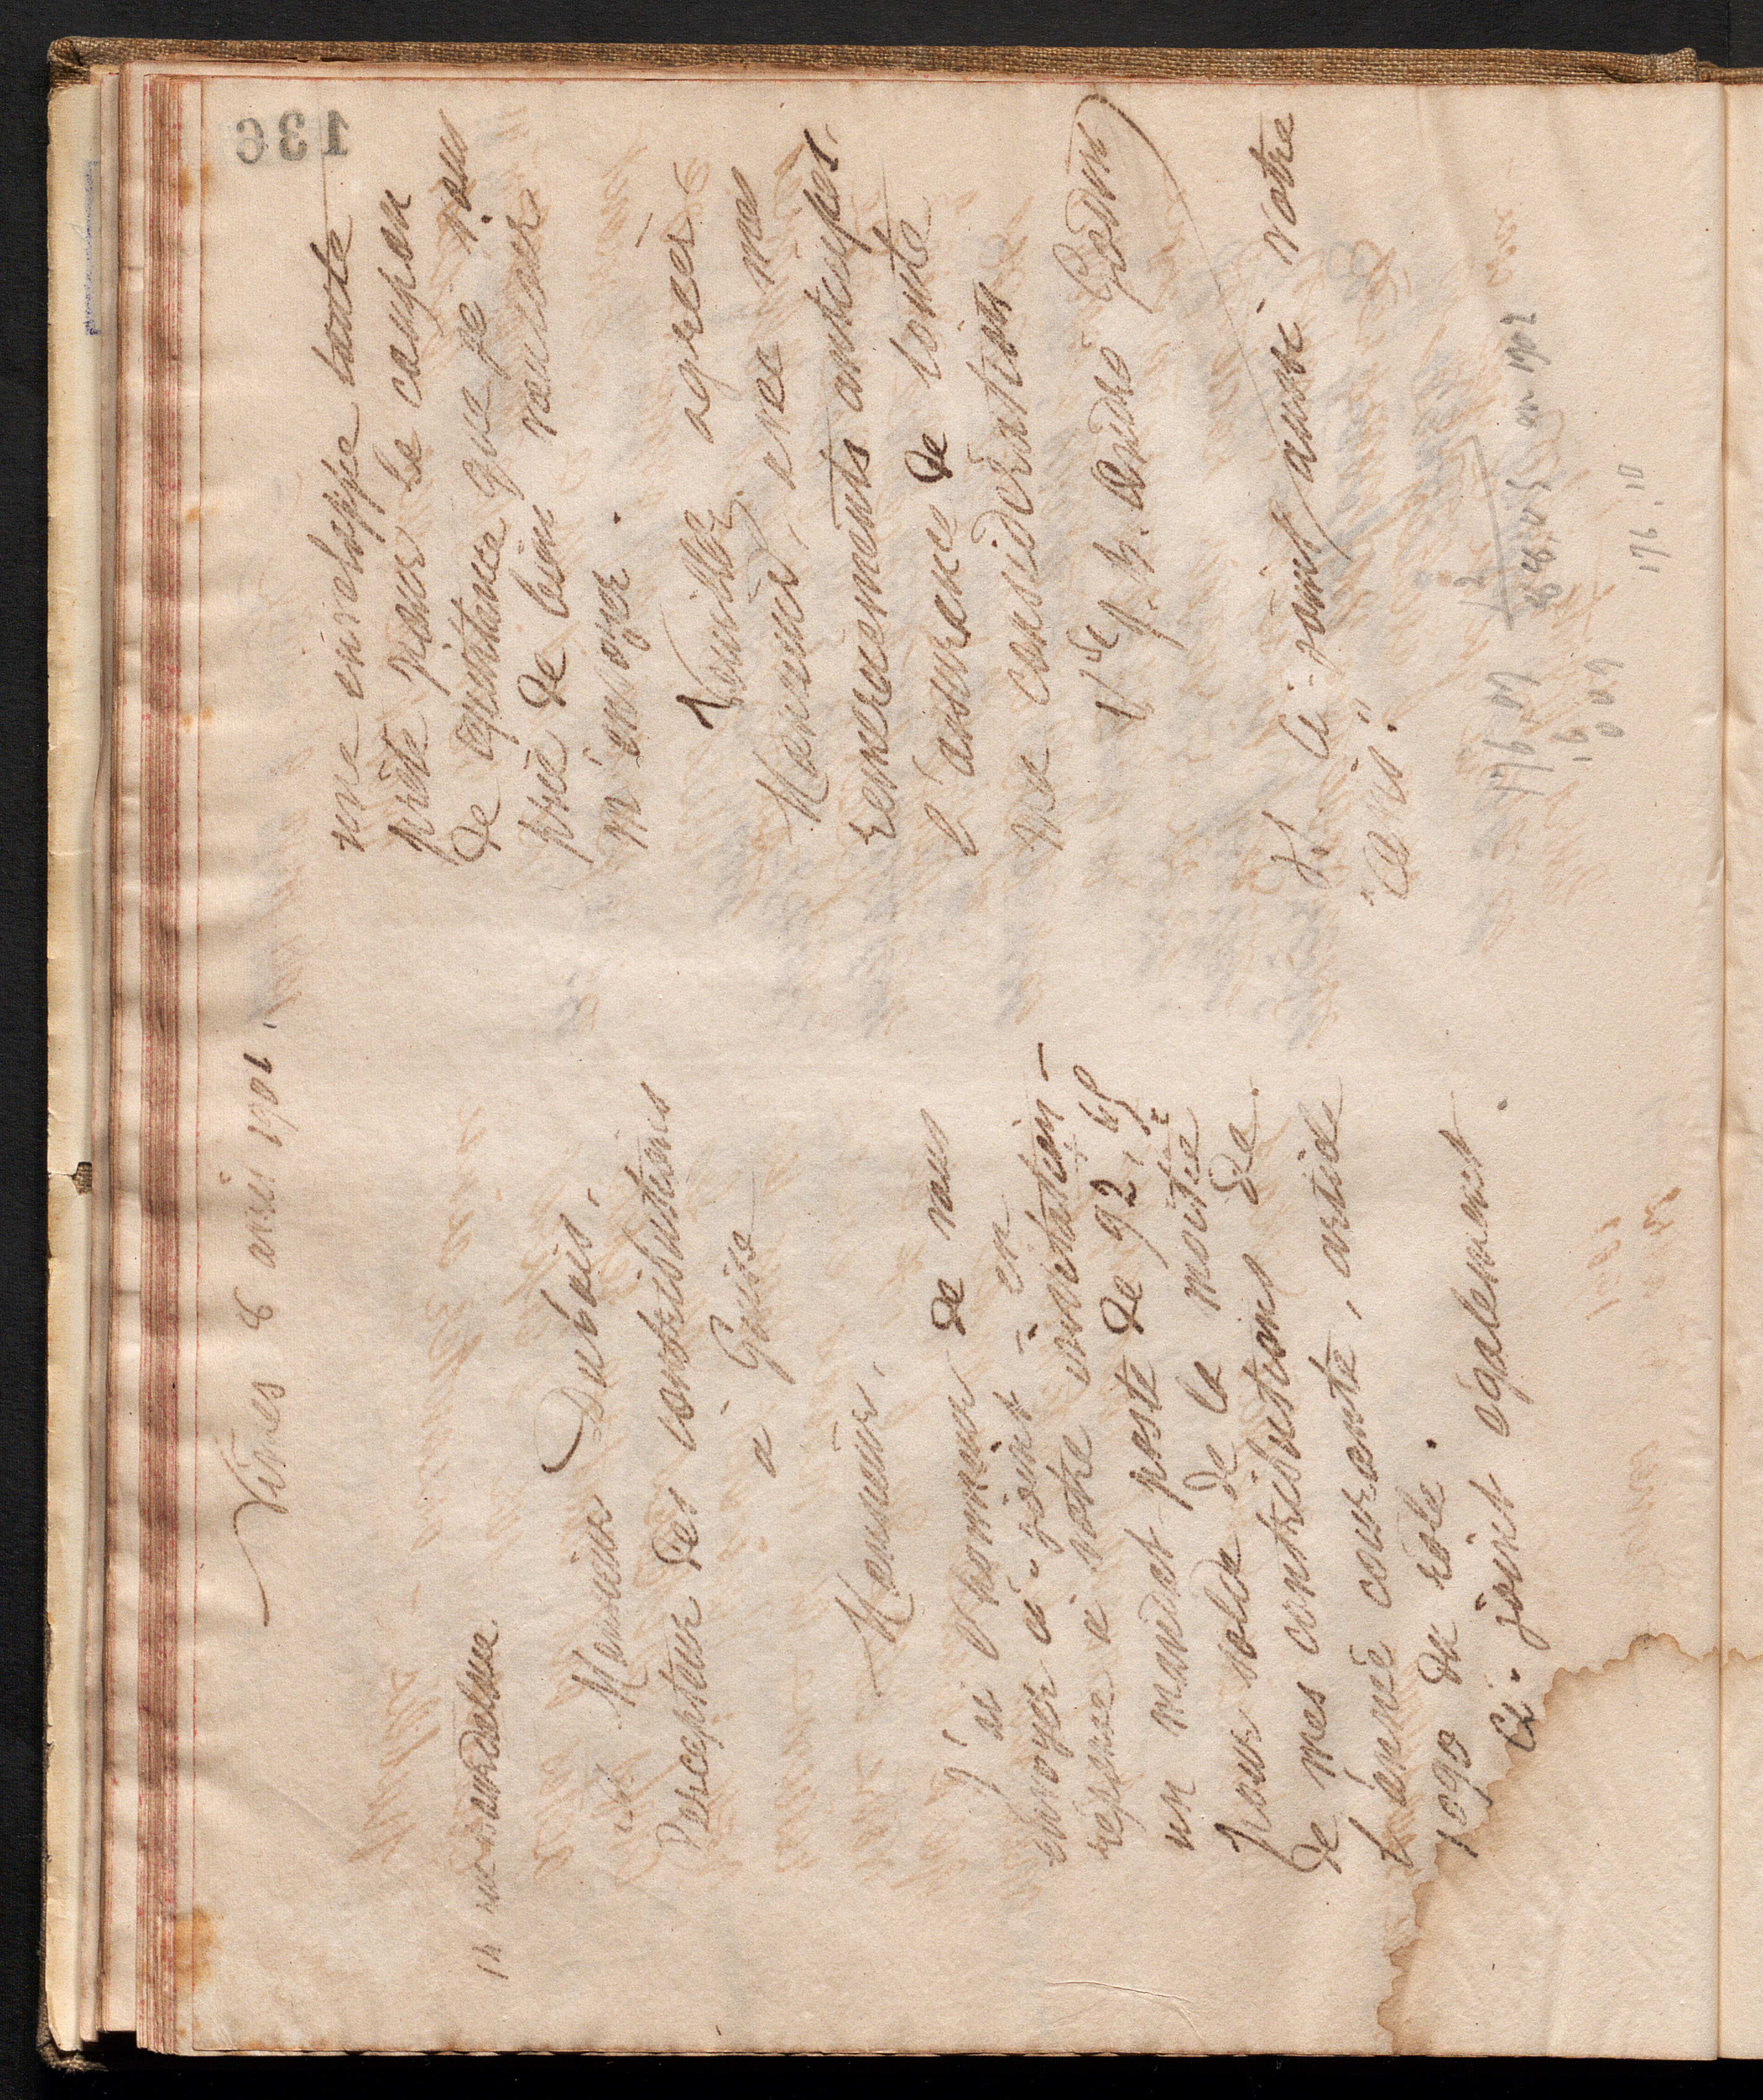 136
Nîmes 6 avril 1901.
14 rue Bourdaloue
Monsieur Dubois,
Percepteur des contributions
à Guise
Monsieur,
J'ai l'honneur de vous
envoyer ci-joint, en
réponse à votre invitation
un mandat poste de 92,65
pour solde de la moitié
de mes contributions de
l'année courante, article
1090 du rôle.
Ci-joint également
une enveloppe toute
prête pour le coupon
de quittance que je vous
prie de bien vouloir
m'envoyer.
Veuillez agréer
Monsieur, avec mes
remerciements anticipés,
l'assurance de toute
ma considération
Vve J. B. André Godin
P.S. Ci-joint aussi votre
"Avis".